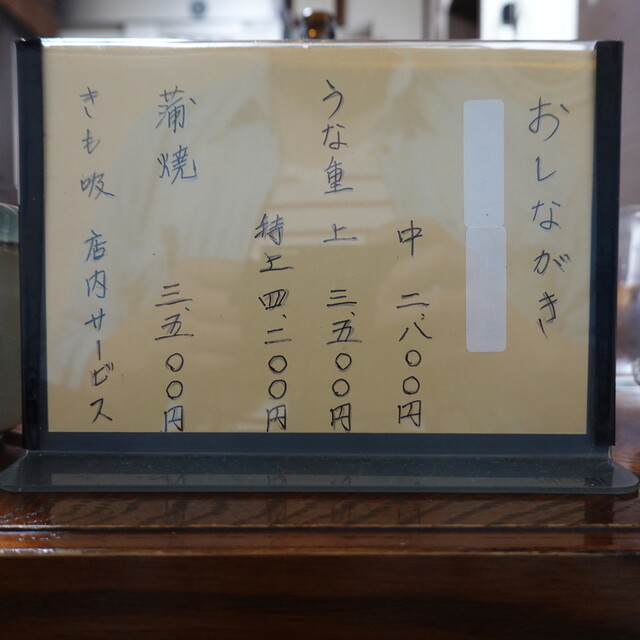 おしながき
中 二、八〇〇円
うな重 上 三、五〇〇円
特上 四、二〇〇円
蒲焼 三、五〇〇円
きも吸 店内サービス